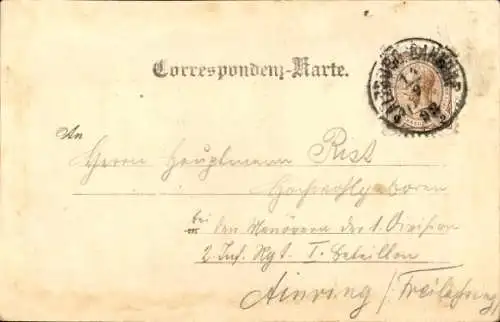 Correspondenz-Karte.
SALZBURG BAHNHOF
An
Herrn Hauptmann Rist
Hochwohlgeboren
bei den Manövern der 1. Division
2. Inf. Rgt. I. Bataillon
Ainring / Freilassing